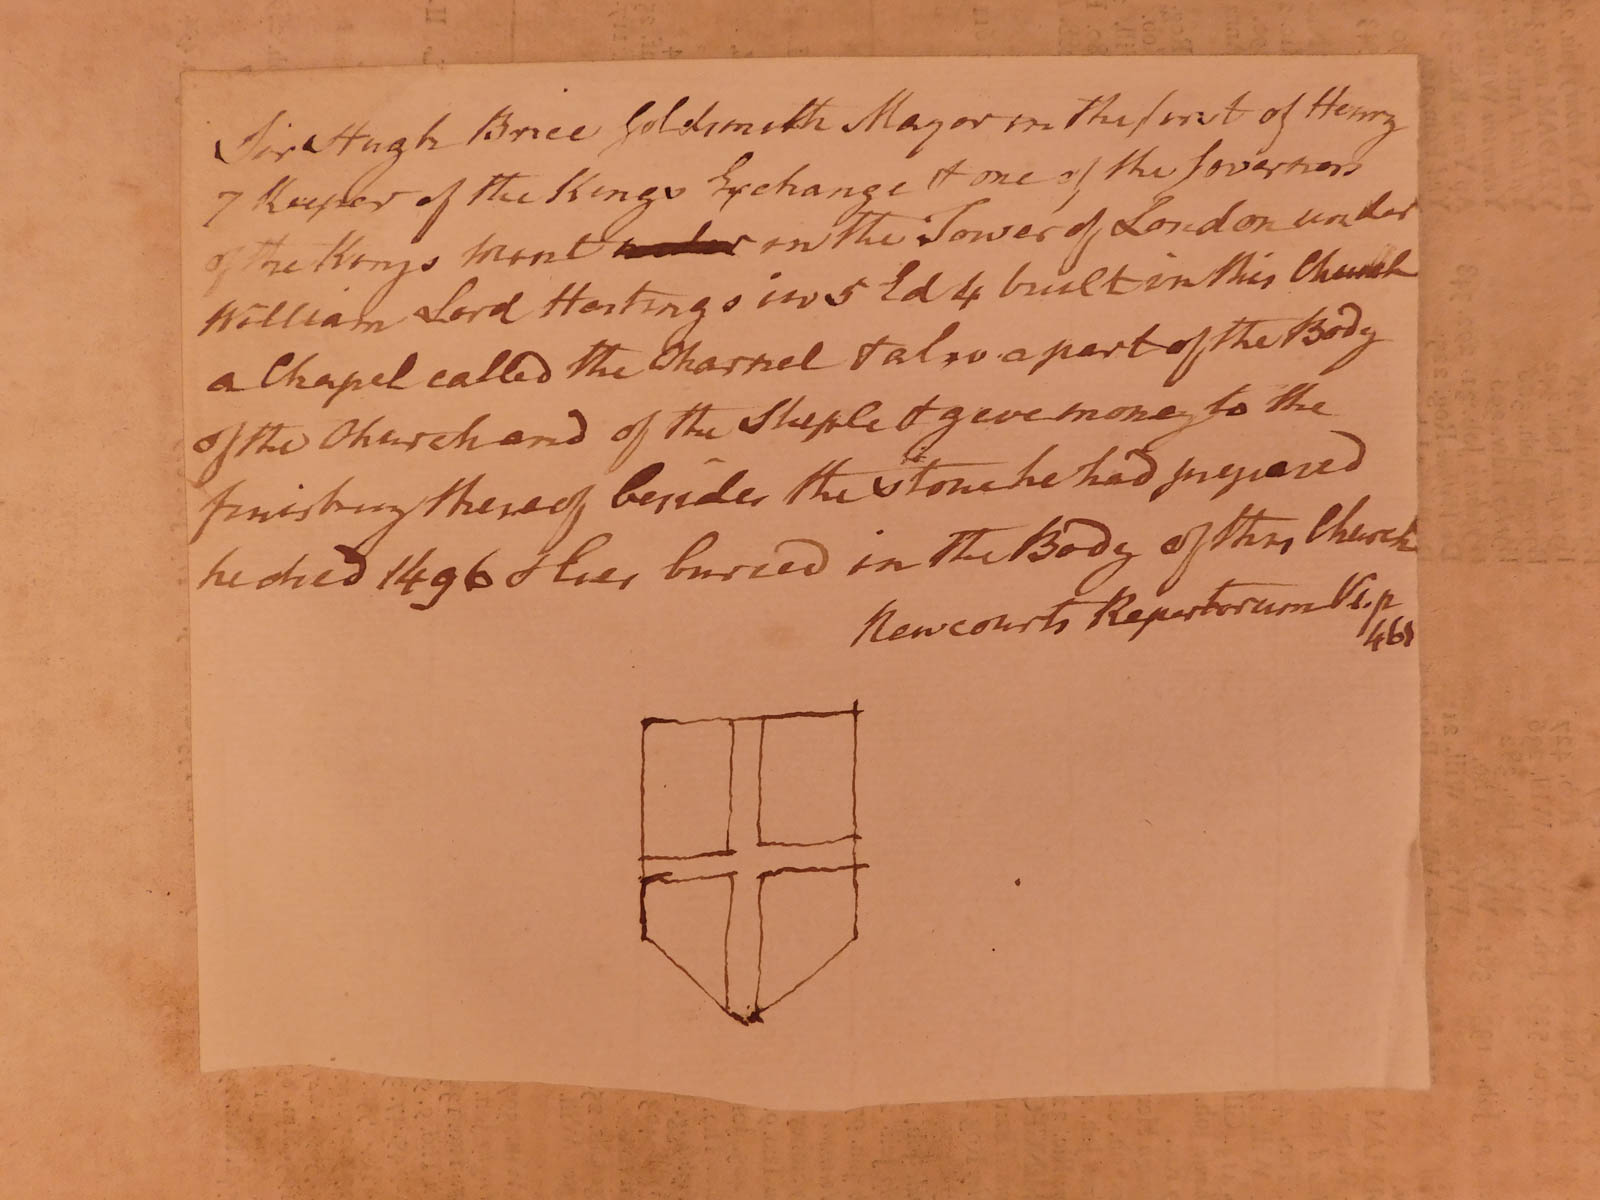 Sir Hugh Brice Goldsmith Mayor in the first of Henry
7 Keeper of the Kings Exchange & one of the Governors
of the Kings Mint in the Tower of London under
William Lord Hastings in 5 Ed 4 built in this Church
a Chapel called the Charnel & also a part of the Body
of the Church and of the Steeple & gave money to the
finishing thereof besides the stone he had prepared
he died 1496 & lies buried in the Body of this Church
Newcourts Repertorium V1. p
461